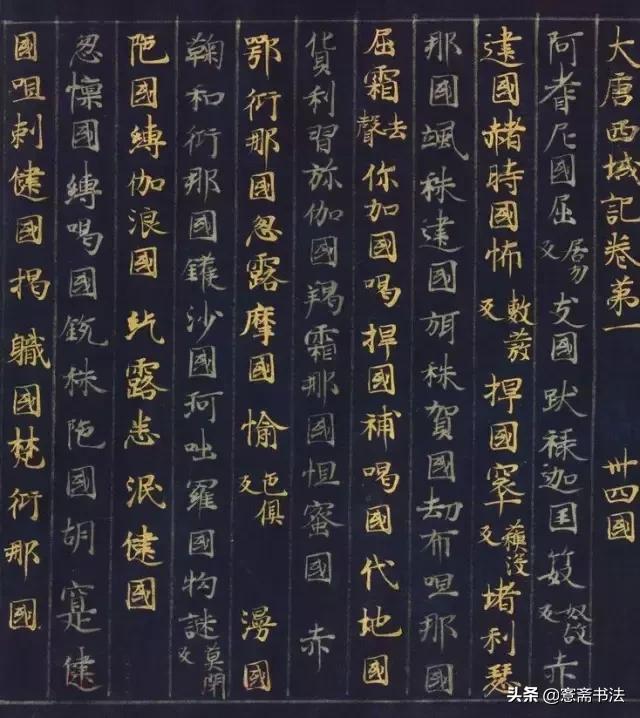 大唐西域記卷第一 卅四國
阿耆尼國屈居勿反支國跋祿迦国笯奴故反赤
建國赭時國怖敷發反捍國窣蘇沒反堵利瑟
那國颯秣建國弭秣賀國劫布呾那國
屈霜去聲你加國喝捍國補喝國代地國
貨利習弥伽國羯霜那國怛蜜國 赤
鄂衍那國忽露摩國愉色俱反 漫國
鞠和衍那國鑊沙國珂咄羅國拘謎莫閇反
陁國縛伽浪國紇露悉泯健國
忽懍國縛喝國銳秣陁國胡寔健
國呾剌健國揭職國梵衍那國
头条 @愙斋书法